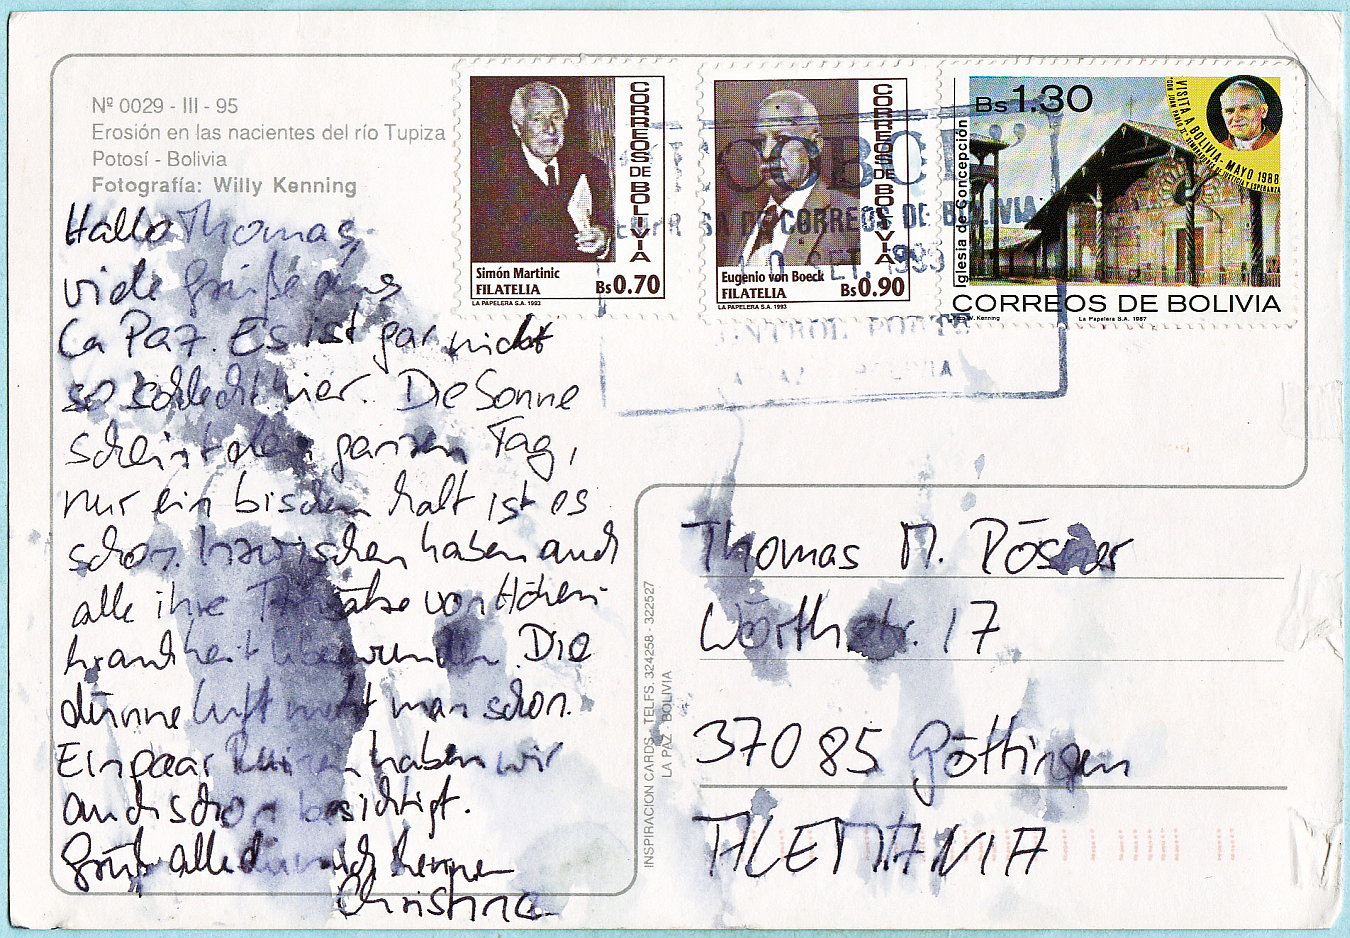 Nº 0029 - III - 95
Erosión en las nacientes del río Tupiza
Potosí - Bolivia
Fotografía: Willy Kenning
Hallo Thomas,
viele Grüße aus
La Paz. Es ist gar nicht
so schlecht hier. Die Sonne
scheint den ganzen Tag,
nur ein bischen kalt ist es
schon. Inzwischen haben auch
alle ihre Ansätze von Höhen-
krankheit überwunden. Die
dünne Luft merkt man schon.
Ein paar Ruinen haben wir
auch schon besichtigt.
Grüß alle die mich kennen
Christina
CORREOS DE BOLIVIA
Simón Martinic
FILATELIA
Bs0.70
LA PAPELERA S.A. 1993
CORREOS DE BOLIVIA
Eugenio von Boeck
FILATELIA
Bs0.90
LA PAPELERA S.A. 1993
Bs1.30
Iglesia de Concepción
VISITA A BOLIVIA - MAYO 1988
CORREOS DE BOLIVIA
Foto W. Kenning
La Papelera S.A. 1987
DE CORREOS DE BOLIVIA
INSPIRACION CARDS. TELFS. 324258 - 322527
LA PAZ - BOLIVIA
Thomas M. Pösner
Wörthstr. 17
37085 Göttingen
ALEMANIA